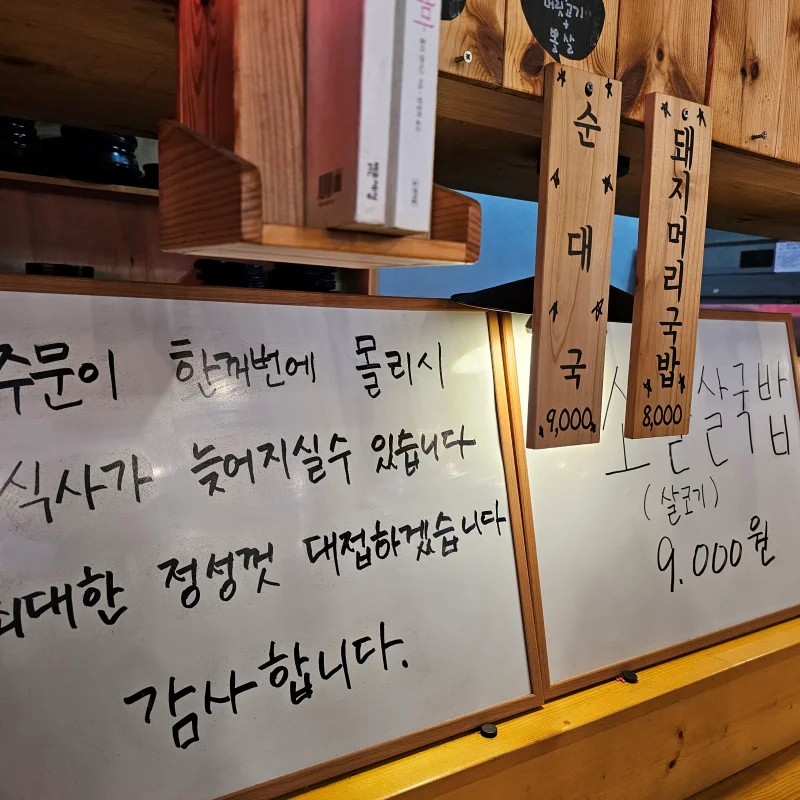 머릿고기
+
볼살
순대국
9,000
돼지머리국밥
8,000
주문이 한꺼번에 몰리시
식사가 늦어지실수 있습니다
최대한 정성껏 대접하겠습니다
감사합니다.
살국밥
(살코기)
9.000원